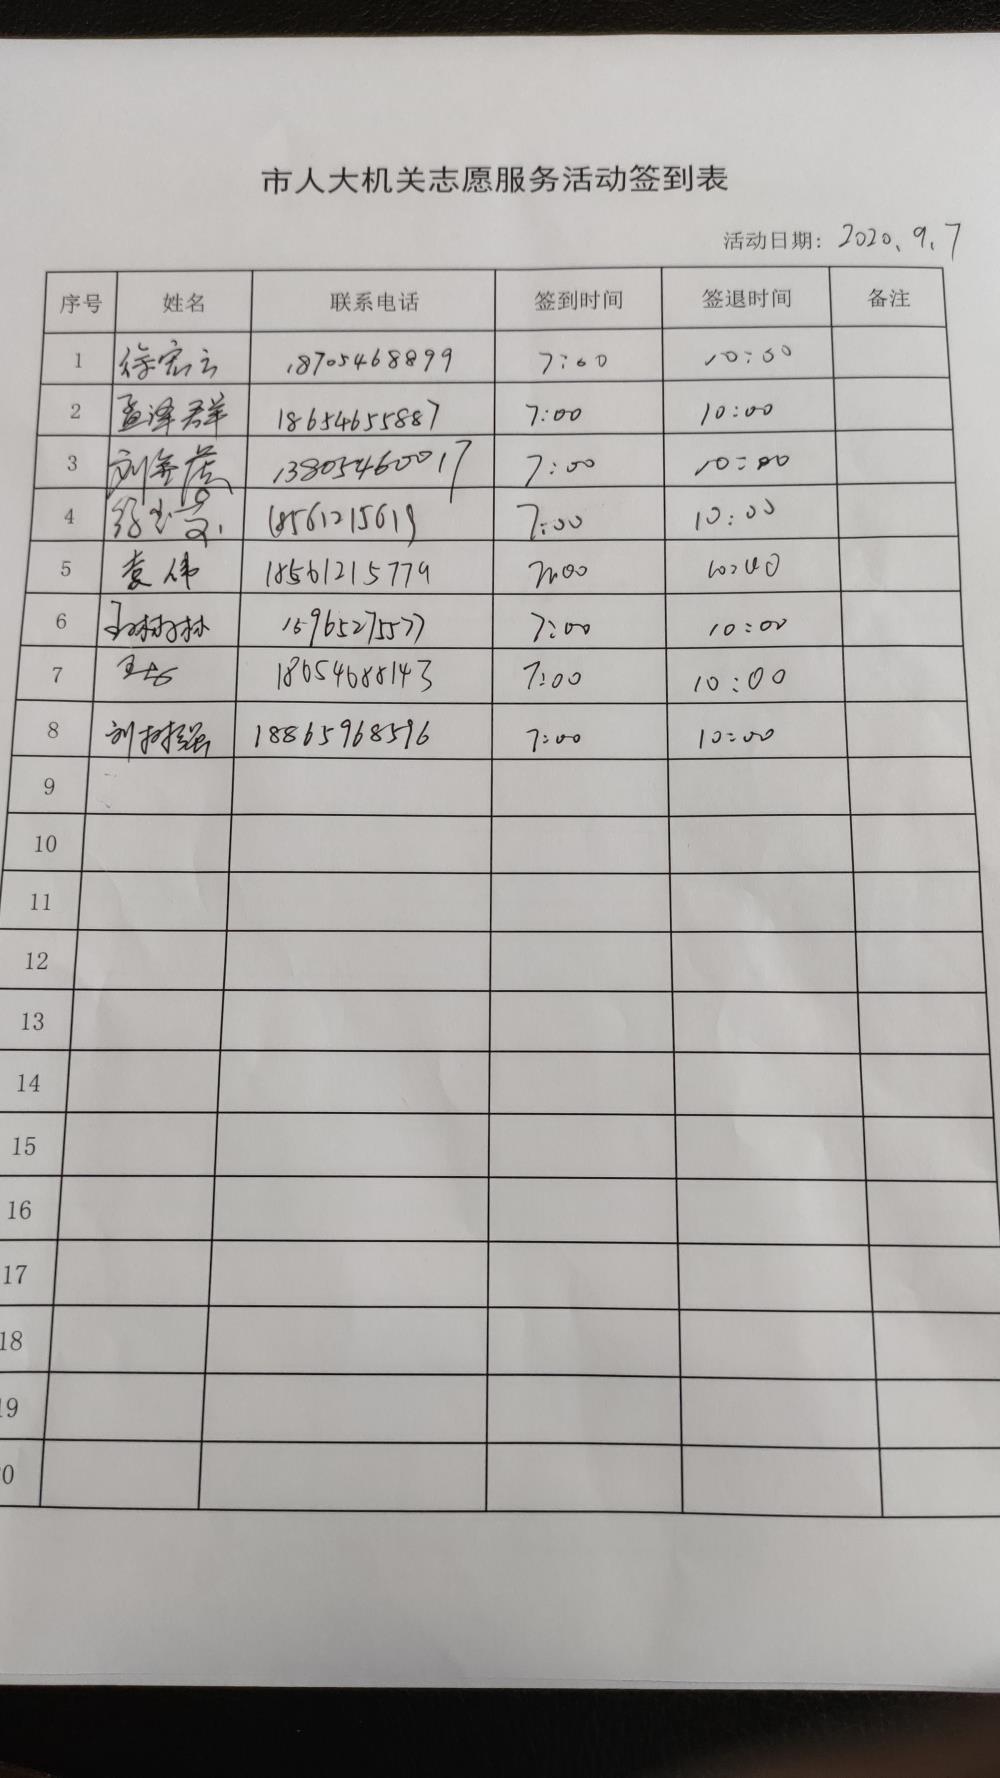 市人大机关志愿服务活动签到表
活动日期: 2020、9、7
序号 姓名 联系电话 签到时间 签退时间 备注
1 徐宏云 18705468899 7:00 10:00
2 孟泽群 18654655887 7:00 10:00
3 刘 13805460017 7:00 10:00
4 18561215619 7:00 10:00
5 袁伟 18561215779 7:00 10:00
6 15965275577 7:00 10:00
7 18654688143 7:00 10:00
8 刘树强 18865968596 7:00 10:00
9
10
11
12
13
14
15
16
17
18
19
0